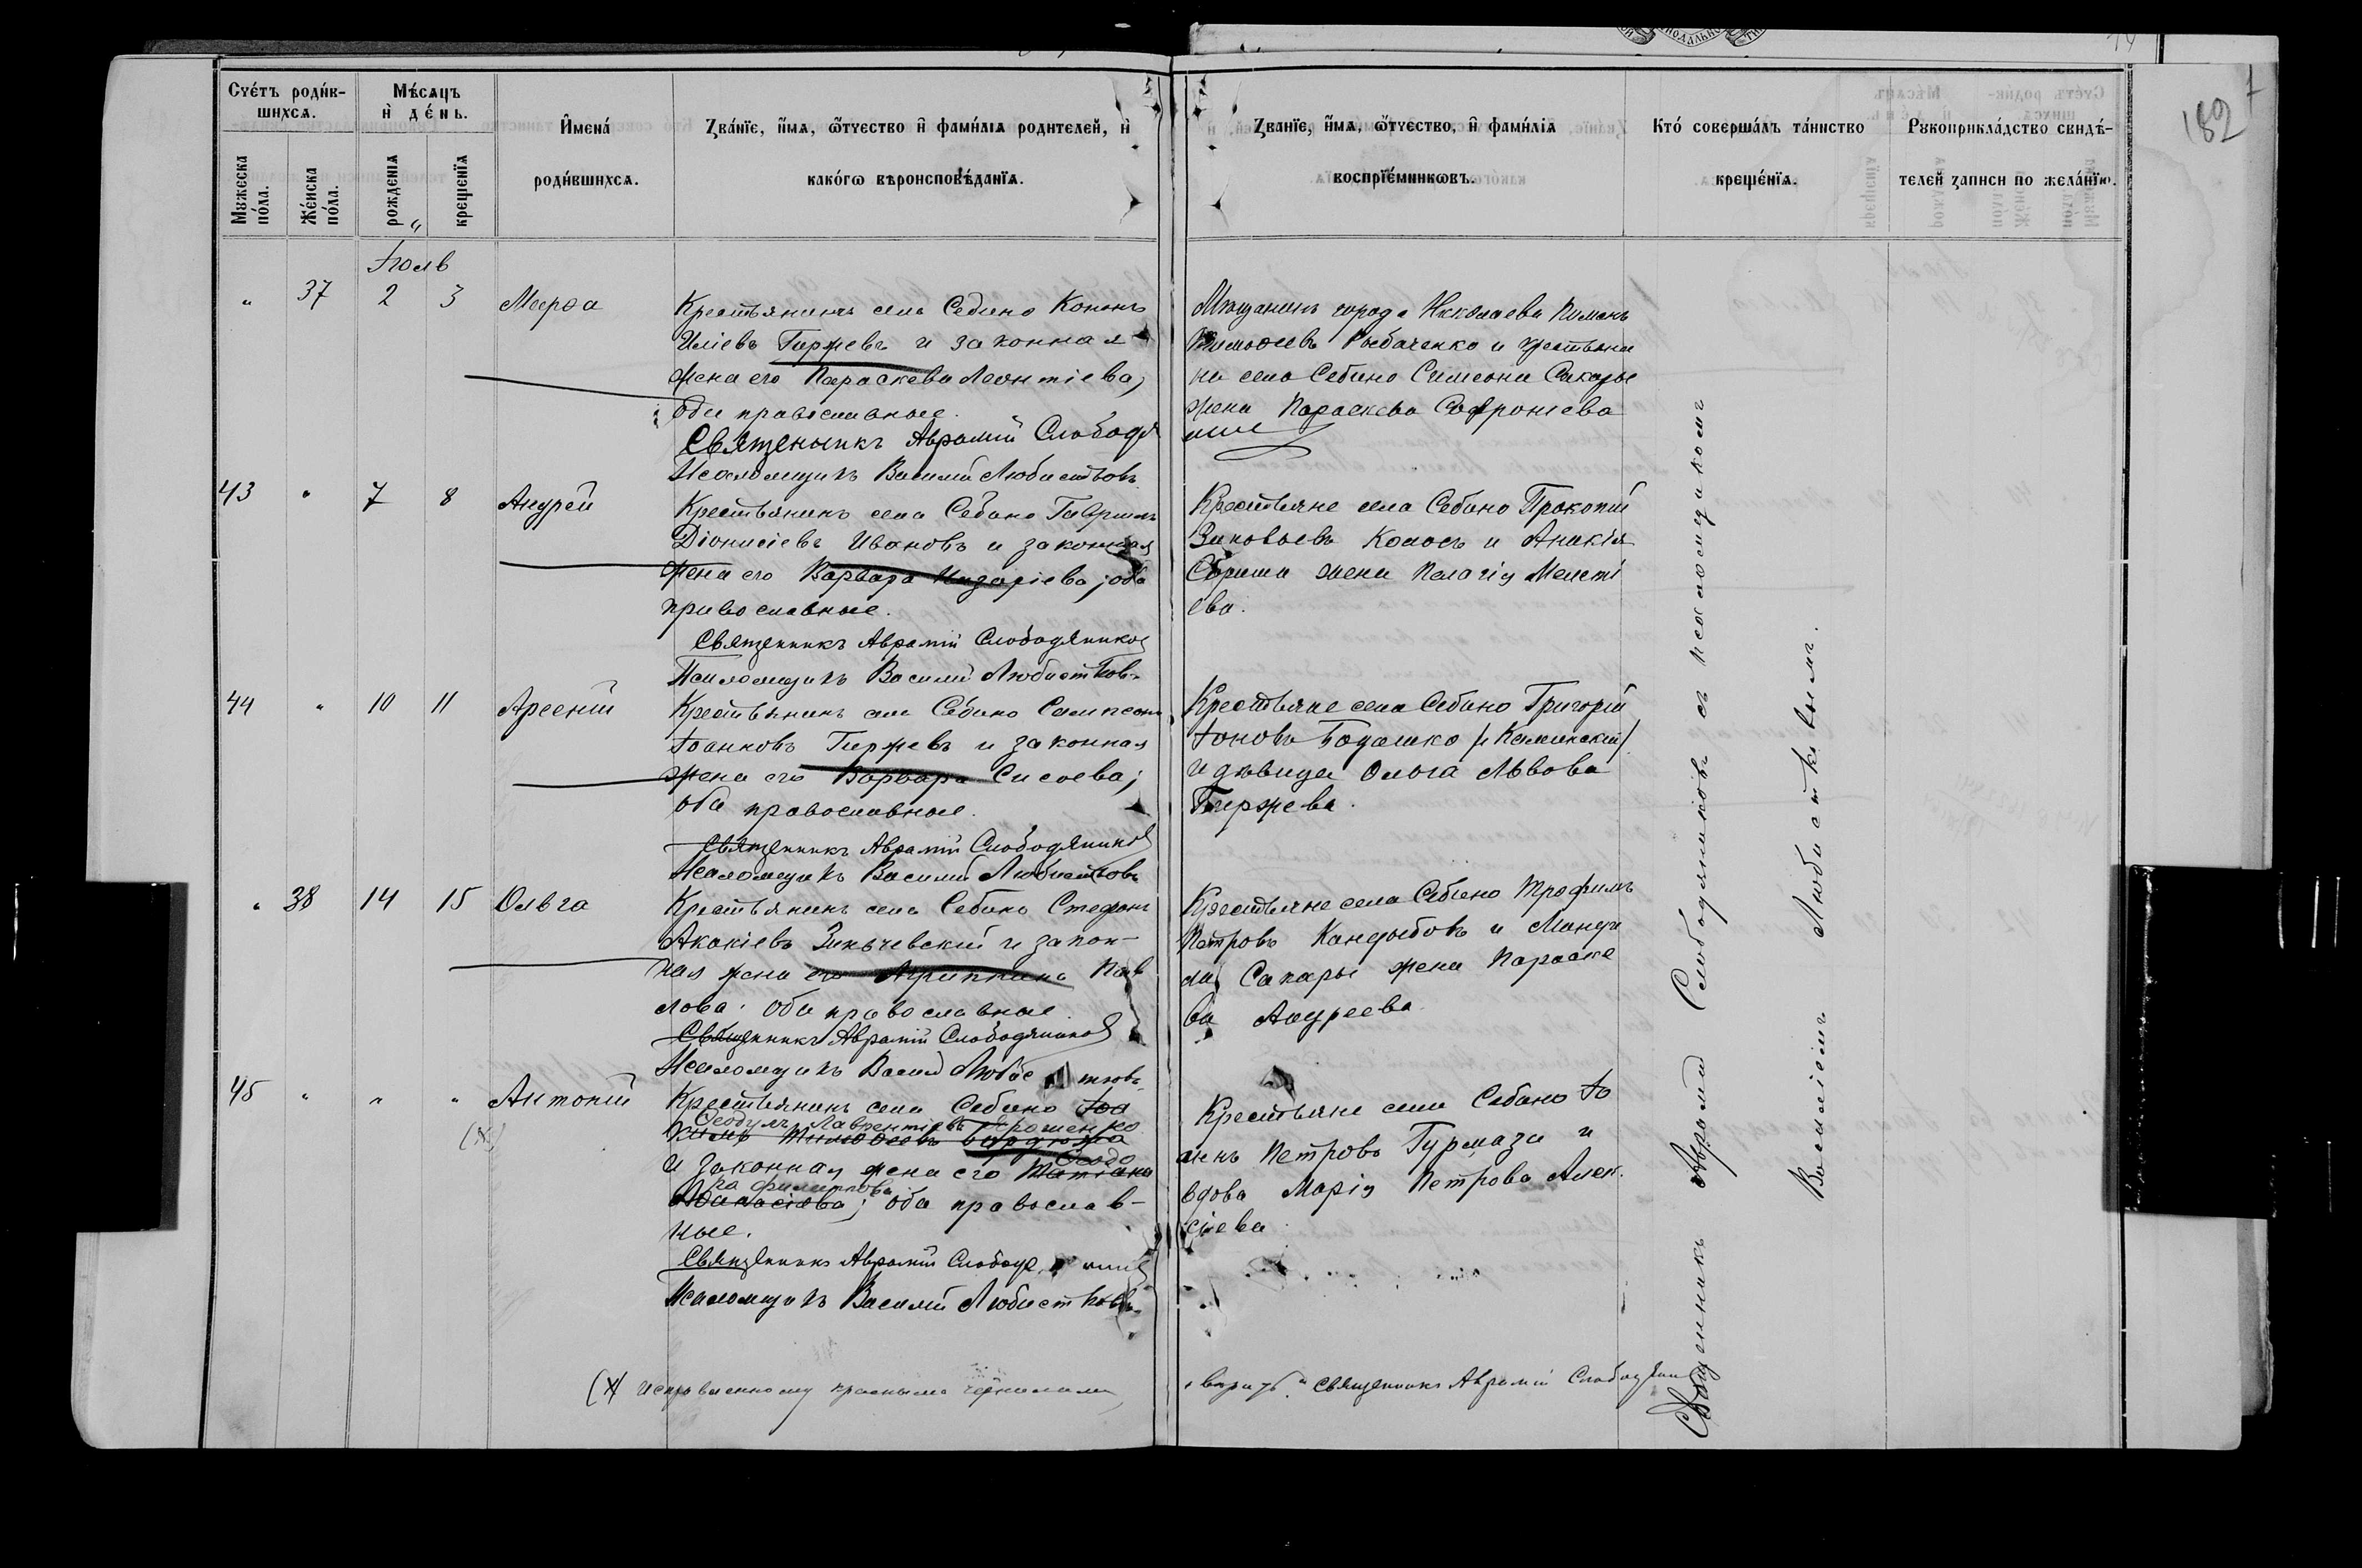 182
Счетъ родив-
шихся.
Мѣсяцъ
и день.
Мужеска
пола.
Женска
пола.
рожденія
крещенія
Имена
родившихся.
Званіе, имя, отчество и фамилія родителей, и
какого вѣроисповѣданія.
Званіе, имя, отчество, и фамилія
воспріемниковъ.
Кто совершалъ таинство
крещенія.
Рукоприкладство свидѣ-
телей записи по желанію.
Іюль
" 37 2 3 Марѳа
Крестьянинъ села Себино Кононъ
Иліевъ Гиржевъ и законная
жена его Параскева Леонтіева,
оба православные.
Священникъ Аврамій Слободя
Псаломщикъ Василій Любистковъ
Мѣщанинъ города Николаева Пименъ
Тимоѳеевъ Рыбаченко и крестьяни
на села Себино Симеона Сакары
жена Параскева Софроніева
43 " 7 8 Андрей
Крестьянинъ села Себино Гавріилъ
Діонисіевъ Ивановъ и законная
жена его Варвара Назаріева, оба
православные.
Священникъ Аврамій Слободяников
Псаломщикъ Василій Любистковъ
Крестьяне села Себино Прокопій
Зиновьевъ Колосъ и Аникія
жена Пелагія
ева.
44 " 10 11 Арсеній
Крестьянинъ села Себино Сампсонъ
Іоанновъ Гиржевъ и законная
жена его Варвара Сисоева;
оба православные.
Священникъ Аврамій Слободяников
Псаломщикъ Василій Любистковъ
Крестьяне села Себино Григорій
Іоновъ Бодашко /и Каминскій/
и дѣвица Ольга Львова
Гиржева.
" 38 14 15 Ольга
Крестьянинъ села Себино Стефанъ
Акакіевъ Зинчевскій и закон-
ная жена его Агриппина Пав
лова. Оба православные.
Священникъ Аврамій Слободяников
Псаломщикъ Васил Любистковъ
Крестьяне села Себино Трофимъ
Петровъ Кандыбовъ и
ла Сакары жена Параске
ва Андреева
45 " " " Антоній
(Х)
Крестьянинъ села Себино Іоа
Ѳеодулъ Лаврентіевъ Ерошенко
кимъ Тимоѳеевъ
Ѳеодо
и законная жена его Татіана
ра Филиппова
Аѳанасіева; оба православ-
ные.
Священникъ Аврамій Слободя
Псаломщикъ Василій Любистковъ
Крестьяне села Себино Іо
аннъ Петровъ Гурмаза и
вдова Марія Петрова Алек
сіева
(Х) Исправленному красными чернилами
"вѣрить" Священникъ Аврамій Слободян
Священникъ Аврамій Слободяниковъ съ псаломщикомъ
Василіемъ Любистковымъ.